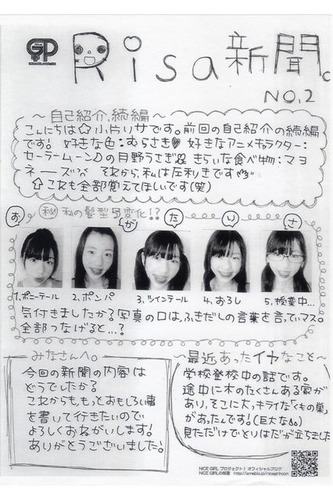 GP
Risa新聞。
NO.2
〜自己紹介、続編〜
こんにちは☆小片リサです。前回の自己紹介の続編
です! 好きな色:むらさき♥ 好きなアニメキャラクター:
セーラームーンの月野うさぎ きらいな食べ物:マヨ
ネーズ それから、私は左利きです
☆これも全部覚えてほしいです(笑)
㊙私の髪型見変化!?
お
が
た
り
さ
1.ポニーテール
2.ポンパ
3.ツインテール
4.おろし
5.授業中…
気付きましたかる?写真の口は、ふきだしの言葉を言っていマス。
全部つなげると…?
みなさんへ。
今回の新聞の内容は
どうでしたかる?
これからも、もっとおもしろい事
を書いて行きたいので
よろしくおねがいします!
ありがとうございました。
〜最近あったイヤなこと〜
学校登校中の話です。
途中に木のたくさんある家が
あり、そこに大キライな"くもの巣"
があったんです!(巨大な)
見ただけでとりはだが立ちました
NICE GIRL プロジェクト! オフィシャルブログ